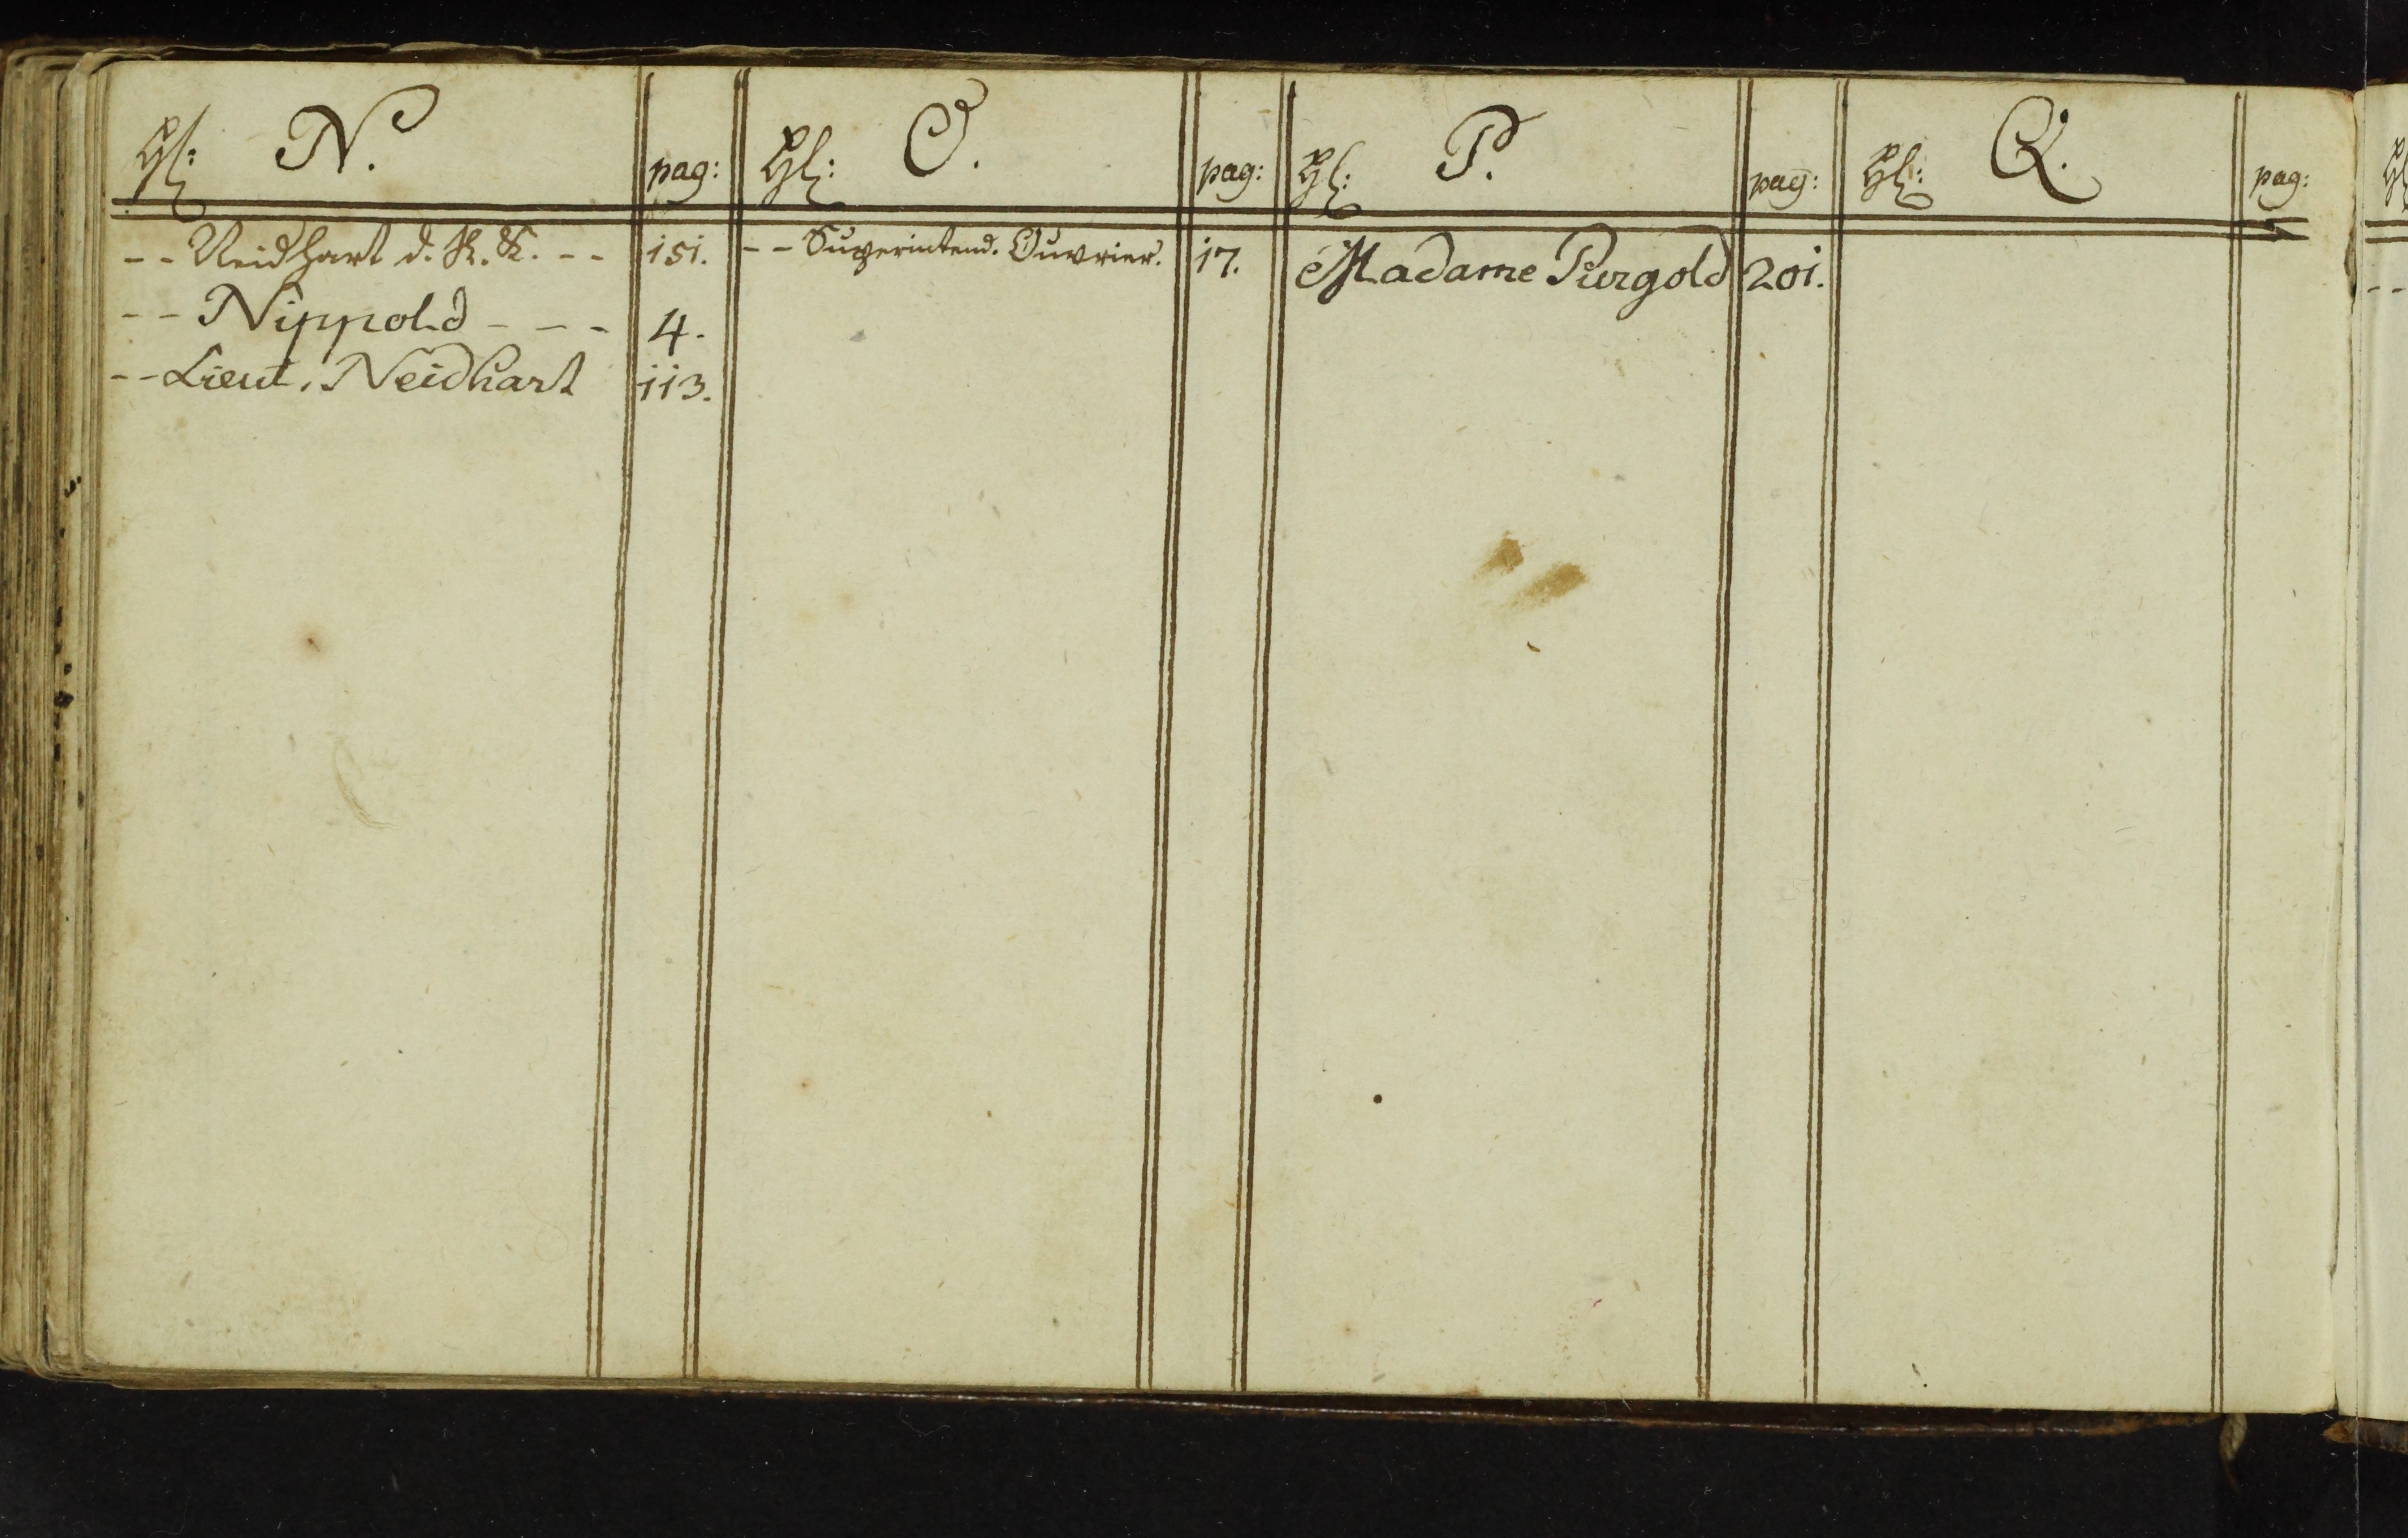 Hℓ: N. pag: Hℓ: O. pag: Hℓ: P. pag: Hℓ: Q. pag:
-- Neidhart d. R. K. -- 151.
-- Nippold - - - 4.
-- Lieut. Neidhart 113.
-- Superintend. Ouvrier. 17.
Madame Purgold 201.